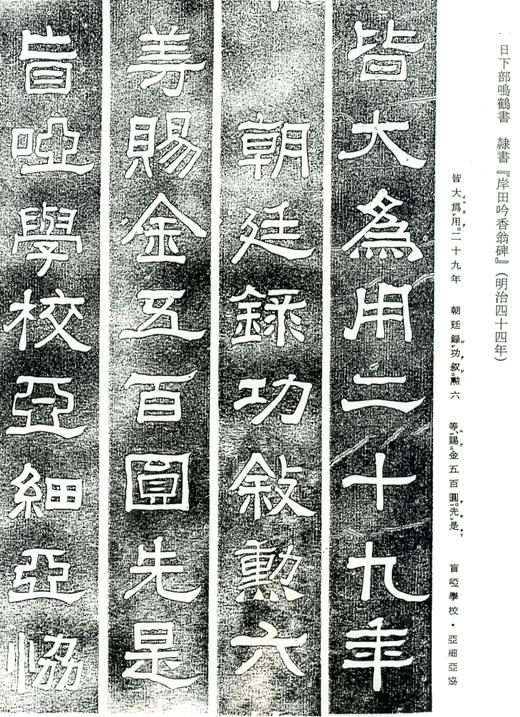 日下部鳴鶴書　隷書『岸田吟香翁碑』（明治四十四年）
皆大爲用。二十九年　朝廷録功叙勲六　等、賜金五百圓。先是　盲啞學校・亞細亞協
皆大爲用二十九年
朝廷録功敘勲六
等賜金五百圓先是
盲啞學校亞細亞協